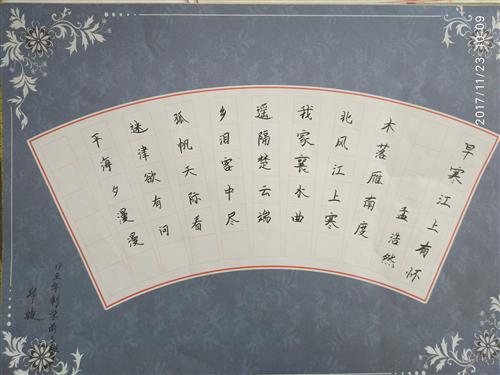 早寒江上有怀
孟浩然
木落雁南度
北风江上寒
我家襄水曲
遥隔楚云端
乡泪客中尽
孤帆天际看
迷津欲有问
平海夕漫漫
2017/11/23 10:09